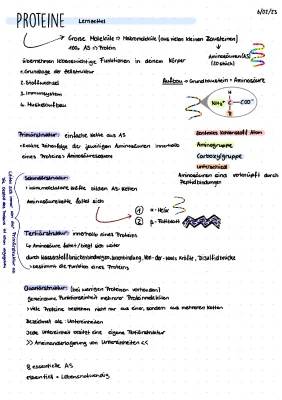 PROTEINE Lernzettel
6/02/23
Grosse Moleküle => Makromoleküle (aus vielen kleinen Bausteinen)
100 AS => Protein
Aminosäuren (AS)
(20 Stück)
übernehmen lebenswichtige Funktionen in deinem Körper
1. Grundlage der Zellstruktur
2. Stoffwechsel
3. Immunsystem
4. Muskelaufbau
Aufbau -> Grundbaustein = Aminosäure
H
NH3+ C COO-
R
Primärstruktur: einfache Kette aus AS
Reihenfolge der jeweiligen Aminosäuren innerhalb
eines Proteins: Aminosäuresequenz
zentrales Kohlenstoff Atom
Aminogruppe
Carboxylgruppe
Unterschied
Aminosäuren eine verknüpft durch
Peptidbindungen
Sekundärstruktur:
bilden AS-Ketten
Aminosäurekette faltet sich
1 α-Helix
2 β-Faltblatt
Tertiärstruktur: innerhalb eines Proteins
Aminosäure faltet/biegt sich weiter
durch Wasserstoffbrückenbindungen, Ionenbindung, Van-der-Waals Kräfte, Disulfidbrücke
> bestimmt die Funktion eines Proteins
Quartärstruktur: (bei wenigen Proteinen vorhanden)
gemeinsame Funktionseinheit mehrerer Proteinmoleküle
> viele Proteine bestehen nicht nur aus einer, sondern aus mehreren Ketten
Bezeichnet als: Untereinheiten
jede Untereinheit besitzt eine eigene Tertiärstruktur
>> Aneinanderlagerung von Untereinheiten <<
8 essentielle AS
essentiell = Lebensnotwendig